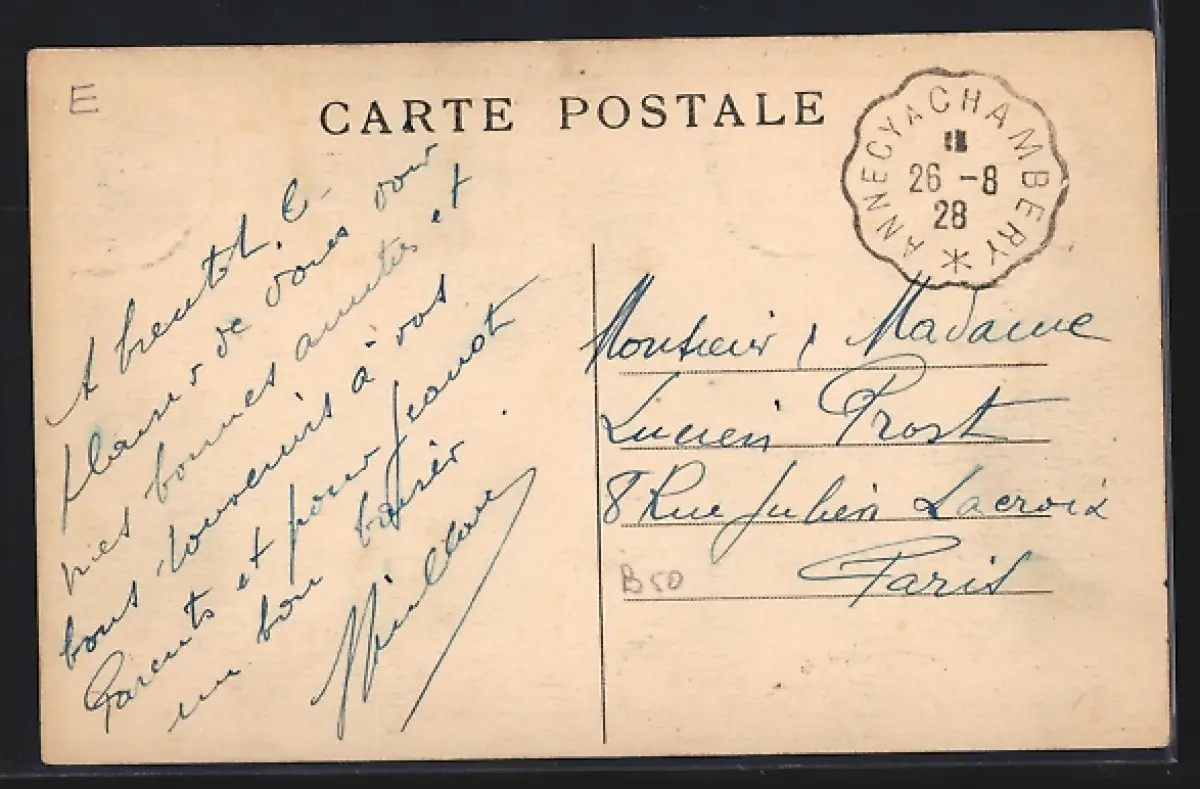 E
CARTE POSTALE
ANNECY A CHAMBERY
26 -8
28
A bientot le
plaisir de vous voir
mes bonnes amitiés et
bons souvenirs à vos
Parents et pour Jeanot
un bon baiser
Monsieur & Madame
Lucien Prost
8 Rue Julien Lacroix
Paris
B50